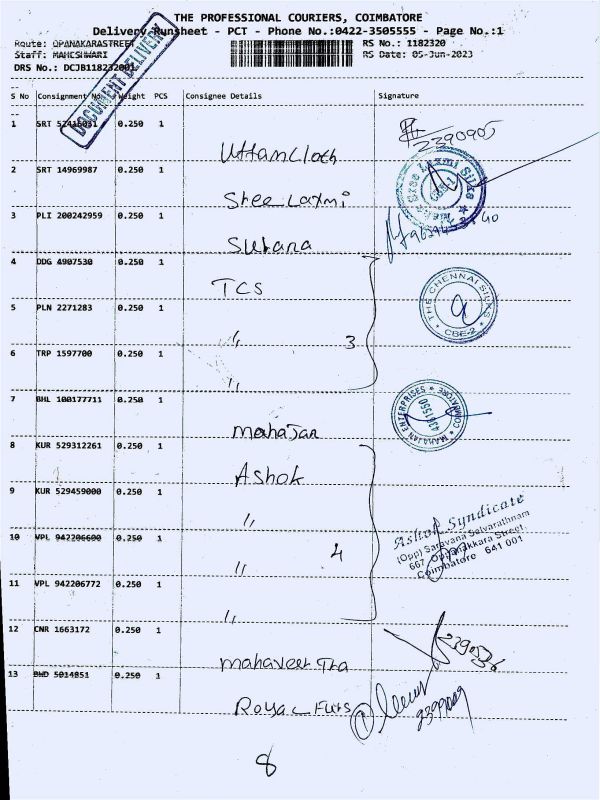 THE PROFESSIONAL COURIERS, COIMBATORE
Delivery Runsheet - PCT - Phone No.:0422-3505555 - Page No.:1
Route: OPANAKARASTREET
RS No.: 1182320
Staff: MAHESHWARI
RS Date: 05-Jun-2023
DRS No.: DCJB118232001
DOCUMENT DELIVERY
S No Consignment No. Weight PCS Consignee Details Signature
1 SRT 0.250 1
2390905
Uttamcloth
2 SRT 14969987 0.250 1
Shree Laxmi
Shree Laxmi Silks
3 PLI 200242959 0.250 1
Surana
4 DDG 4907530 0.250 1
TCS
THE CHENNAI SILKS
CBE-2
5 PLN 2271283 0.250 1
〃 3
6 TRP 1597700 0.250 1
〃
7 BHL 100177711 0.250 1
Mahajan
MAHAJAN ENTERPRISES
COIMBATORE
4381550
8 KUR 529312261 0.250 1
Ashok
9 KUR 529459000 0.250 1
〃
Ashok Syndicate
(Opp) Saravana Selvarathnam
667, Oppanakkara Street,
Coimbatore 641 001
10 VPL 942206600 0.250 1
〃 4
11 VPL 942206772 0.250 1
〃
12 CNR 1663172 0.250 1
Mahaveer Tra
13 BWD 5014851 0.250 1
Royal Furs
1
2399009
8